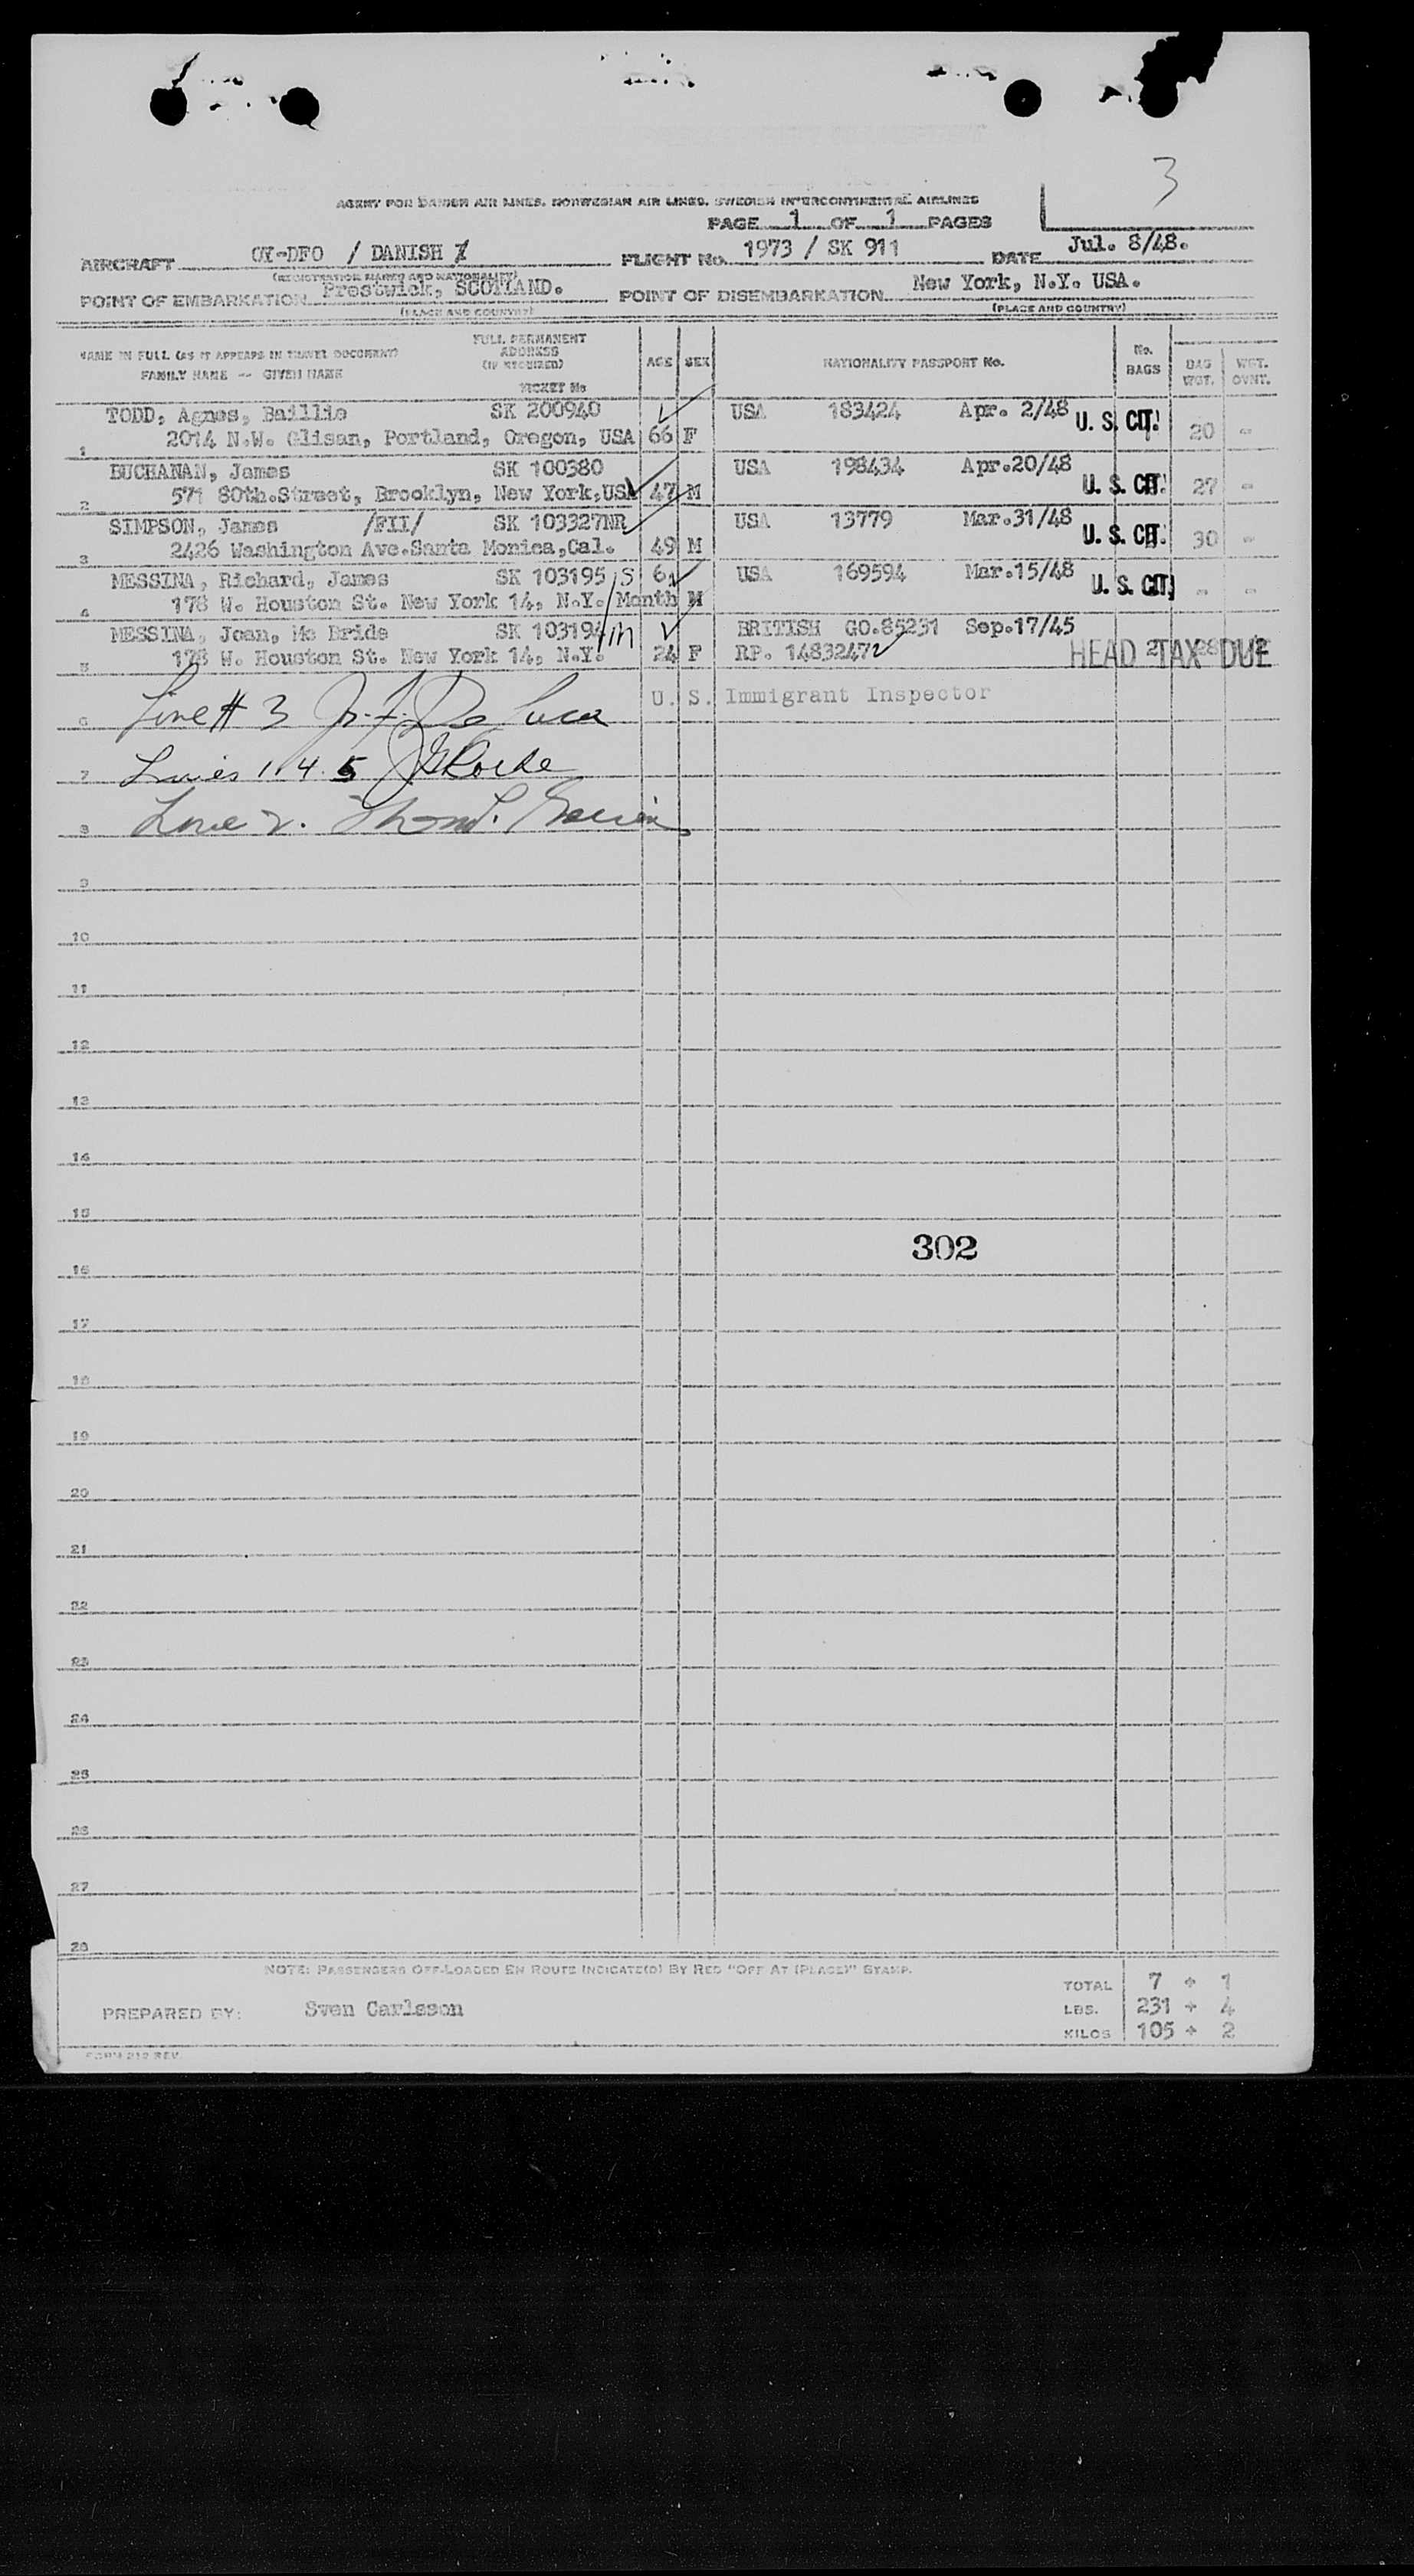 3
AGENT FOR DANISH AIR LINES, NORWEGIAN AIR LINES, SWEDISH INTERCONTINENTAL AIRLINES
PAGE 1 OF 1 PAGES
AIRCRAFT OY-DFO / DANISH FLIGHT No. 1973 / SK 911 DATE Jul. 8/48.
(REGISTRATION MARKS AND NATIONALITY)
POINT OF EMBARKATION Prestwick, SCOTLAND. POINT OF DISEMBARKATION New York, N.Y. USA.
(PLACE AND COUNTRY) (PLACE AND COUNTRY)
NAME IN FULL (AS IT APPEARS IN TRAVEL DOCUMENT) FULL PERMANENT ADDRESS (IF REQUIRED) AGE SEX NATIONALITY PASSPORT No. No. BAGS BAG WGT. WGT. OVNT.
FAMILY NAME -- GIVEN NAME TICKET No
TODD, Agnes, Baillie SK 200940 USA 183424 Apr. 2/48 U. S. CIT.
1 2014 N.W. Glisan, Portland, Oregon, USA 66 F 20 -
BUCHANAN, James SK 100380 USA 198434 Apr.20/48
2 571 80th.Street, Brooklyn, New York,USA 47 M U. S. CIT. 27 -
SIMPSON, James /FII/ SK 103327NR USA 13779 Mar.31/48
3 2426 Washington Ave.Santa Monica,Cal. 49 M U. S. CIT. 30 -
MESSINA, Richard, James SK 103195 S 6 USA 169594 Mar.15/48
4 178 W. Houston St. New York 14, N.Y. Month M U. S. CIT. - -
MESSINA, Joan, Mc Bride SK 103194 m BRITISH GO.85231 Sep.17/45
5 178 W. Houston St. New York 14, N.Y. 24 F RP. 1483247 HEAD TAX DUE 2 28 2
6 Line # 3 J. F. De Luca U. S. Immigrant Inspector
7 Lines 1. 4. 5
8 Line 2.
9
10
11
12
13
14
15
302
16
17
18
19
20
21
22
23
24
25
26
27
28
NOTE: PASSENGERS OFF-LOADED EN ROUTE INDICATE(D) BY RED "OFF AT (PLACE)" STAMP.
TOTAL 7 + 1
PREPARED BY: Sven Carlsson LBS. 231 + 4
KILOS 105 + 2
FORM 212 REV.